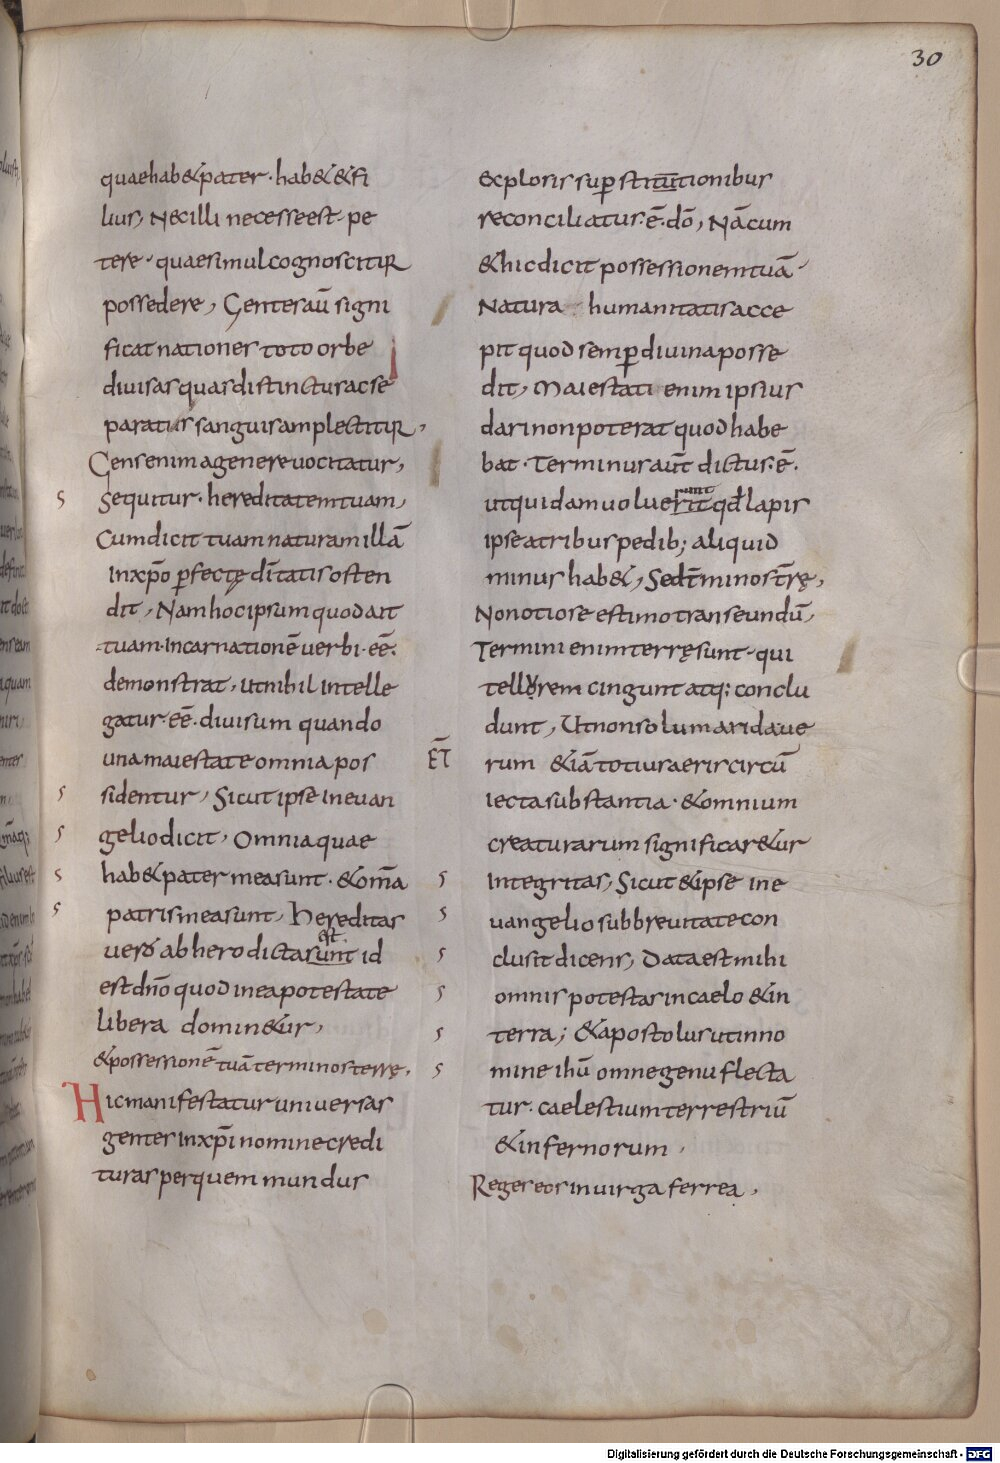 30
quae hab& pater · hab& & fi
lius, Nec illi necesse est pe
tere · quae simul cognoscitur
possedere, Gentes aū signi
ficat nationes toto orbe
divisas quas distinctur ac se
paratus sanguis amplectitur,
Gens enim a genere vocitatur,
s sequitur · hereditatem tuam,
Cum dicit tuam naturam illā
In xp̄o ꝑfectę dīttatis osten
dit, Nam hoc ipsum quod ait
tuam · Incarnationē verbi · eē·
demonstrat, ut nihil intelle
gatur · eē · divisum quando
una maiestate omnia pos
s sidentur, Sicut ipse In evan
s gelio dicit, Omnia quae
s hab& pater mea sunt · & om̄a
s patris mea sunt, Hereditas
est
vero ab hero dicta sunt id
est dn̄o quod in ea potestate
libera domin&ur,
& possessionē tuā terminos terrę,
Hic manifestatur universas
gentes In xp̄i nomine credi
turas per quem mundus
explosis suꝑstitutionibus
reconciliatus · ē · dō, Nā cum
& hic dicit possessionem tuā·
Natura humanitatis acce
pit quod semꝑ divina posse
dit, Maiestati enim ipsius
dari non poterat quod habe
bat · Terminus aūt dictus · ē ·
runt
ut quidam voluerit qđ lapis
ipse a tribus pedib; aliquid
minus hab&, Sed t̄minos t̄rę,
Non otiose estimo transeundū,
Termini enim terrę sunt · qui
tellorem cingunt atq; conclu
dunt, Ut non solum arida ve
ET rum &iā totius aeris circū
iecta substantia · & omnium
creaturarum significar&ur
s Integritas, Sicut & ipse in e
s vangelio sub brevitate con
s clusit dicens, Data est mihi
s omnis potestas in caelo & in
s terra; & apostolus ut in no
s mine ihū omne genu flecta
tur · caelestium terrestriū
& infernorum ·
Reges eos in virga ferrea,
Digitalisierung gefördert durch die Deutsche Forschungsgemeinschaft - DFG